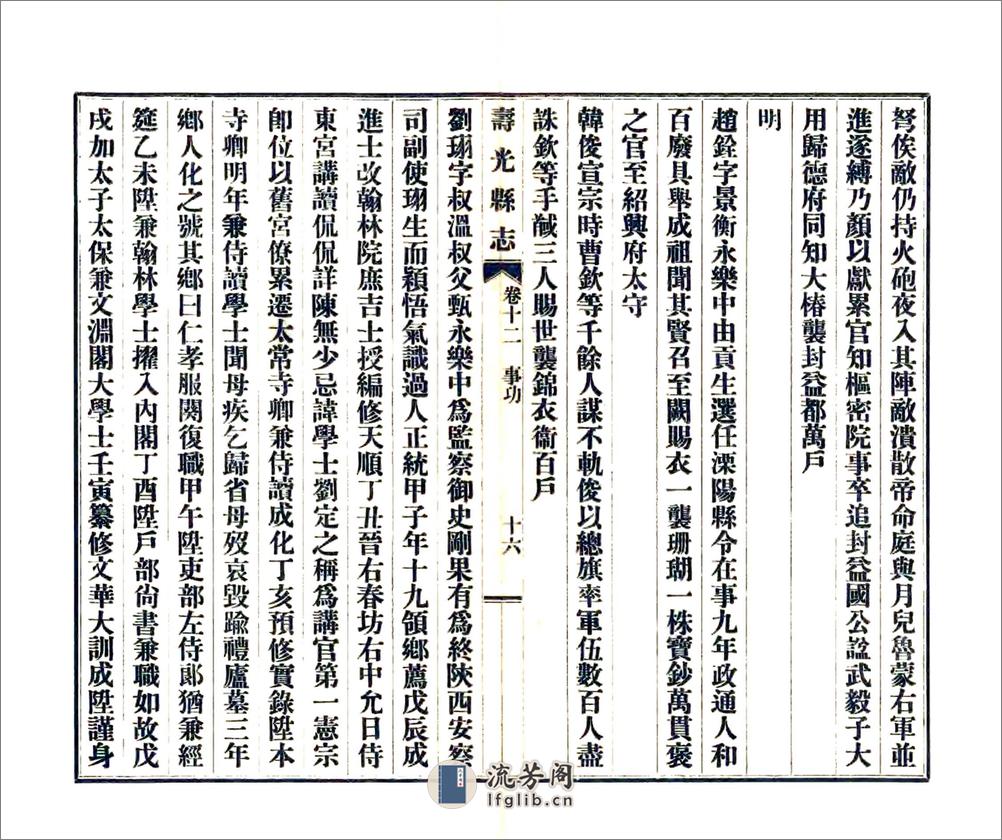 弩俟敵仍持火砲夜入其陣敵潰散帝命庭與月兒魯蒙右軍並
進逐縛乃顏以獻累官知樞密院事卒追封益國公諡武毅子大
用歸德府同知大椿襲封益都萬戶
明
趙銓字景衡永樂中由貢生選任溧陽縣令在事九年政通人和
百廢具舉成祖聞其賢召至闕賜衣一襲珊瑚一株寶鈔萬貫褒
之官至紹興府太守
韓俊宣宗時曹欽等千餘人謀不軌俊以總旗率軍伍數百人盡
誅欽等手馘三人賜世襲錦衣衞百戶
壽光縣志 卷十二 事功 十六
劉珝字叔溫叔父甄永樂中爲監察御史剛果有爲終陝西按察
司副使珝生而穎悟氣識過人正統甲子年十九領鄉薦戊辰成
進士改翰林院庶吉士授編修天順丁丑晉右春坊右中允日侍
東宮講讀侃侃詳陳無少忌諱學士劉定之稱爲講官第一憲宗
卽位以舊宮僚累遷太常寺卿兼侍讀成化丁亥預修實錄陞本
寺卿明年兼侍讀學士聞母疾乞歸省母歿哀毀踰禮廬墓三年
鄉人化之號其鄉曰仁孝服闋復職甲午陞吏部左侍郞猶兼經
筵乙未陞兼翰林學士擢入內閣丁酉陞戶部尙書兼職如故戊
戌加太子太保兼文淵閣大學士壬寅纂修文華大訓成陞謹身
流芳阁
lfglib.cn